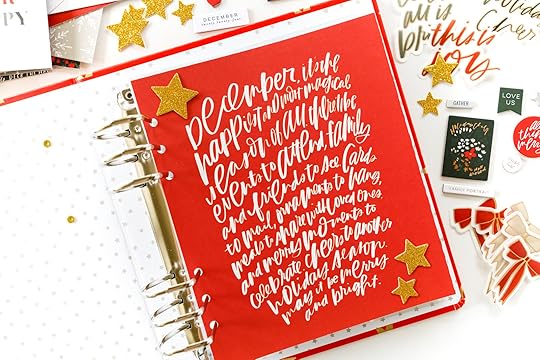 PY
DECEMBER
december, it's the
happiest and most magical
season of all. there's like
events to attend, family
and friends to see, cards
to mail, ornaments to hang,
meals to share with loved ones
and merry moments to
celebrate. cheers to another
holiday season.
may it be merry
and bright.
all is
this is
joy
Cheer
GATHER
LOVE
US
FAMILY PORTRAIT